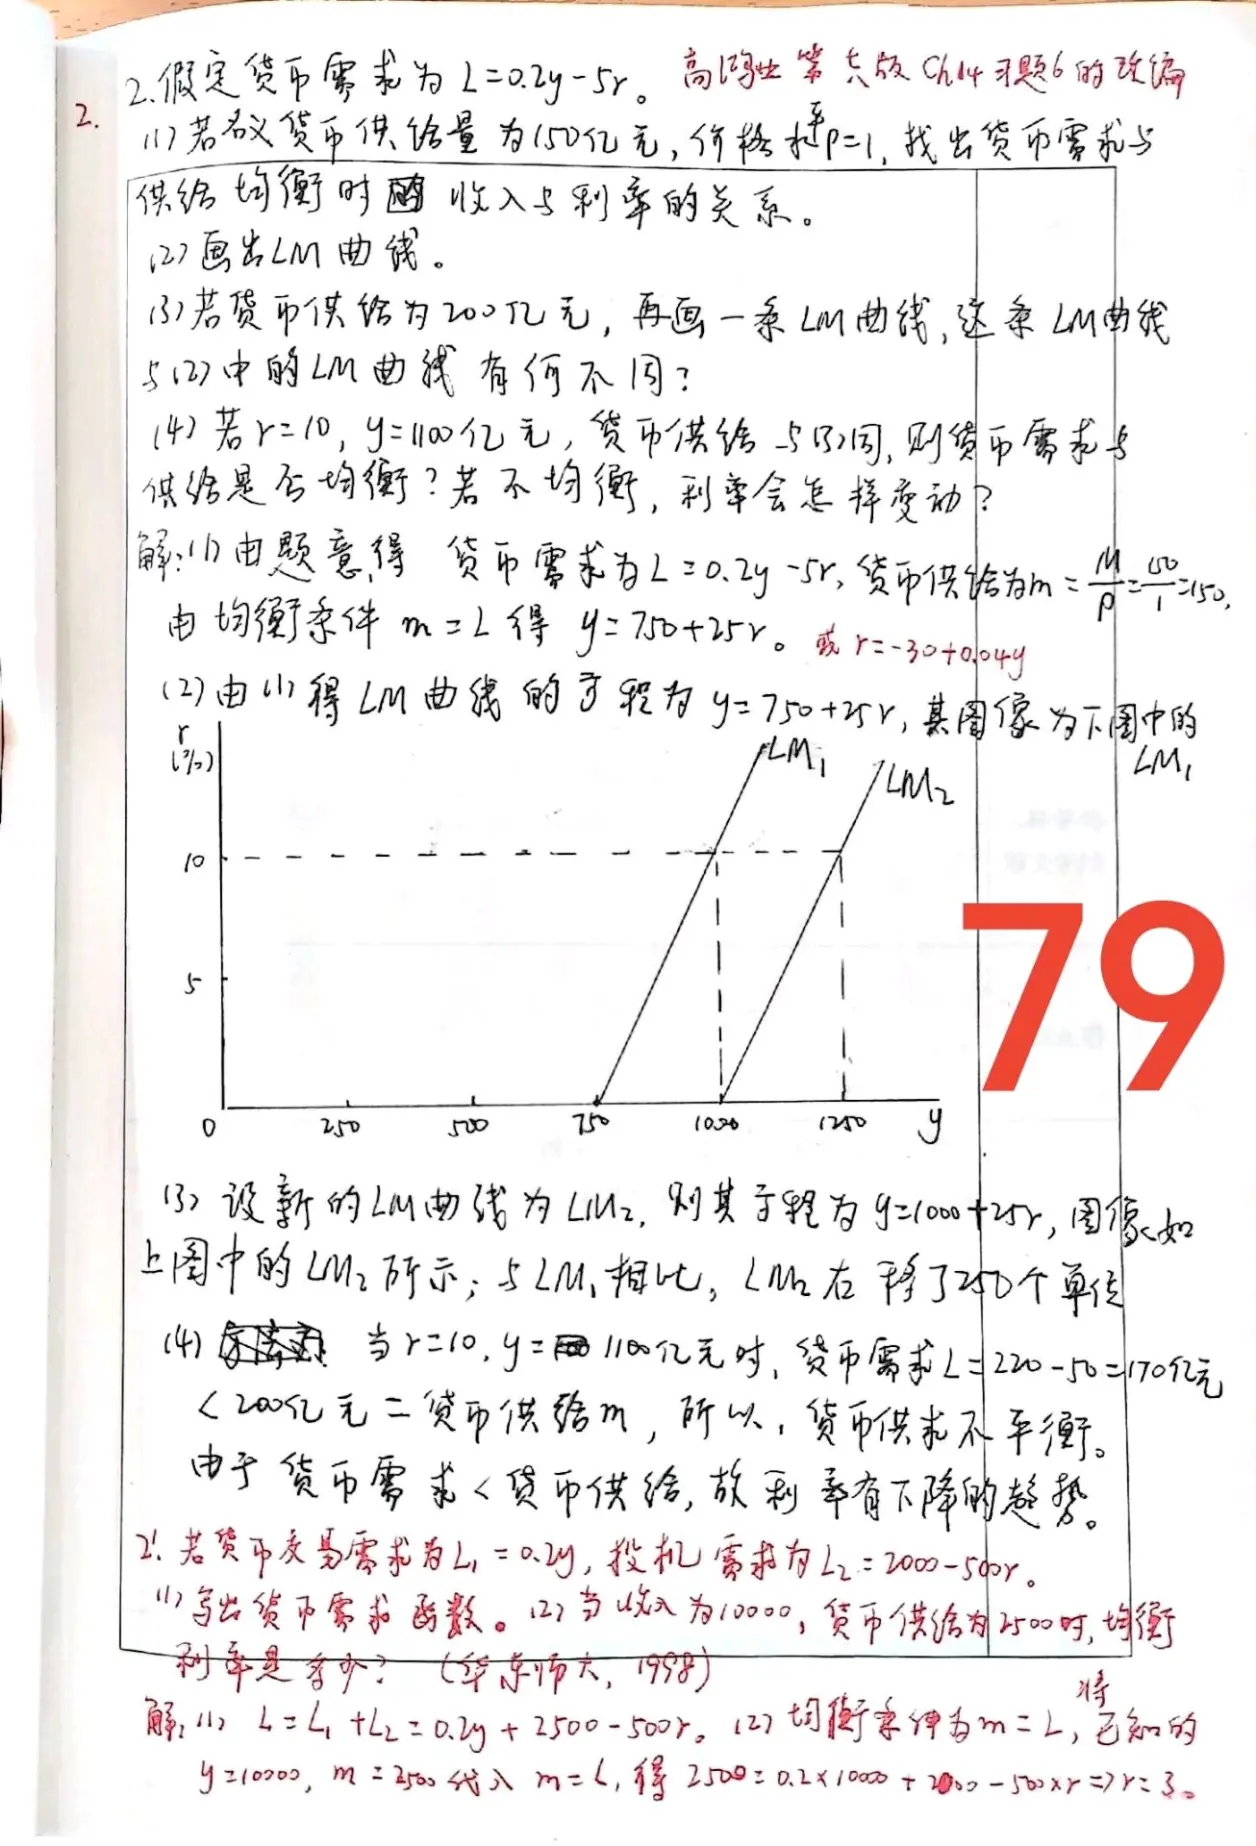 2.假定货币需求为L=0.2y-5r。 高鸿业第六版Ch14习题6的改编
2.
(1)若名义货币供给量为150亿元,价格水平P=1,找出货币需求与
供给均衡时的收入与利率的关系。
(2)画出LM曲线。
(3)若货币供给为200亿元,再画一条LM曲线,这条LM曲线
与(2)中的LM曲线有何不同?
(4)若r=10,y=1100亿元,货币供给与(3)同,则货币需求与
供给是否均衡?若不均衡,利率会怎样变动?
解:(1)由题意,得 货币需求为L=0.2y-5r,货币供给为m=M/P=150/1=150,
由均衡条件m=L得 y=750+25r。 或r=-30+0.04y
(2)由(1)得LM曲线的方程为y=750+25r,其图像为下图中的
LM₁
r
(%)
LM₁
LM₂
10
5
0 250 500 750 1000 1250 y
79
(3)设新的LM曲线为LM₂,则其方程为y=1000+25r,图像如
上图中的LM₂所示;与LM₁相比,LM₂右移了250个单位
(4) 当r=10,y=1100亿元时,货币需求L=220-50=170亿元
<200亿元=货币供给m,所以,货币供求不平衡。
由于货币需求<货币供给,故利率有下降的趋势。
2'.若货币交易需求为L₁=0.2y,投机需求为L₂=2000-500r。
(1)写出货币需求函数。(2)当收入为10000,货币供给为2500时,均衡
利率是多少?(华东师大,1998)
解:(1) L=L₁+L₂=0.2y+2500-500r。(2)均衡条件为m=L,将已知的
y=10000,m=2500代入m=L,得2500=0.2×10000+2000-500×r=>r=3。